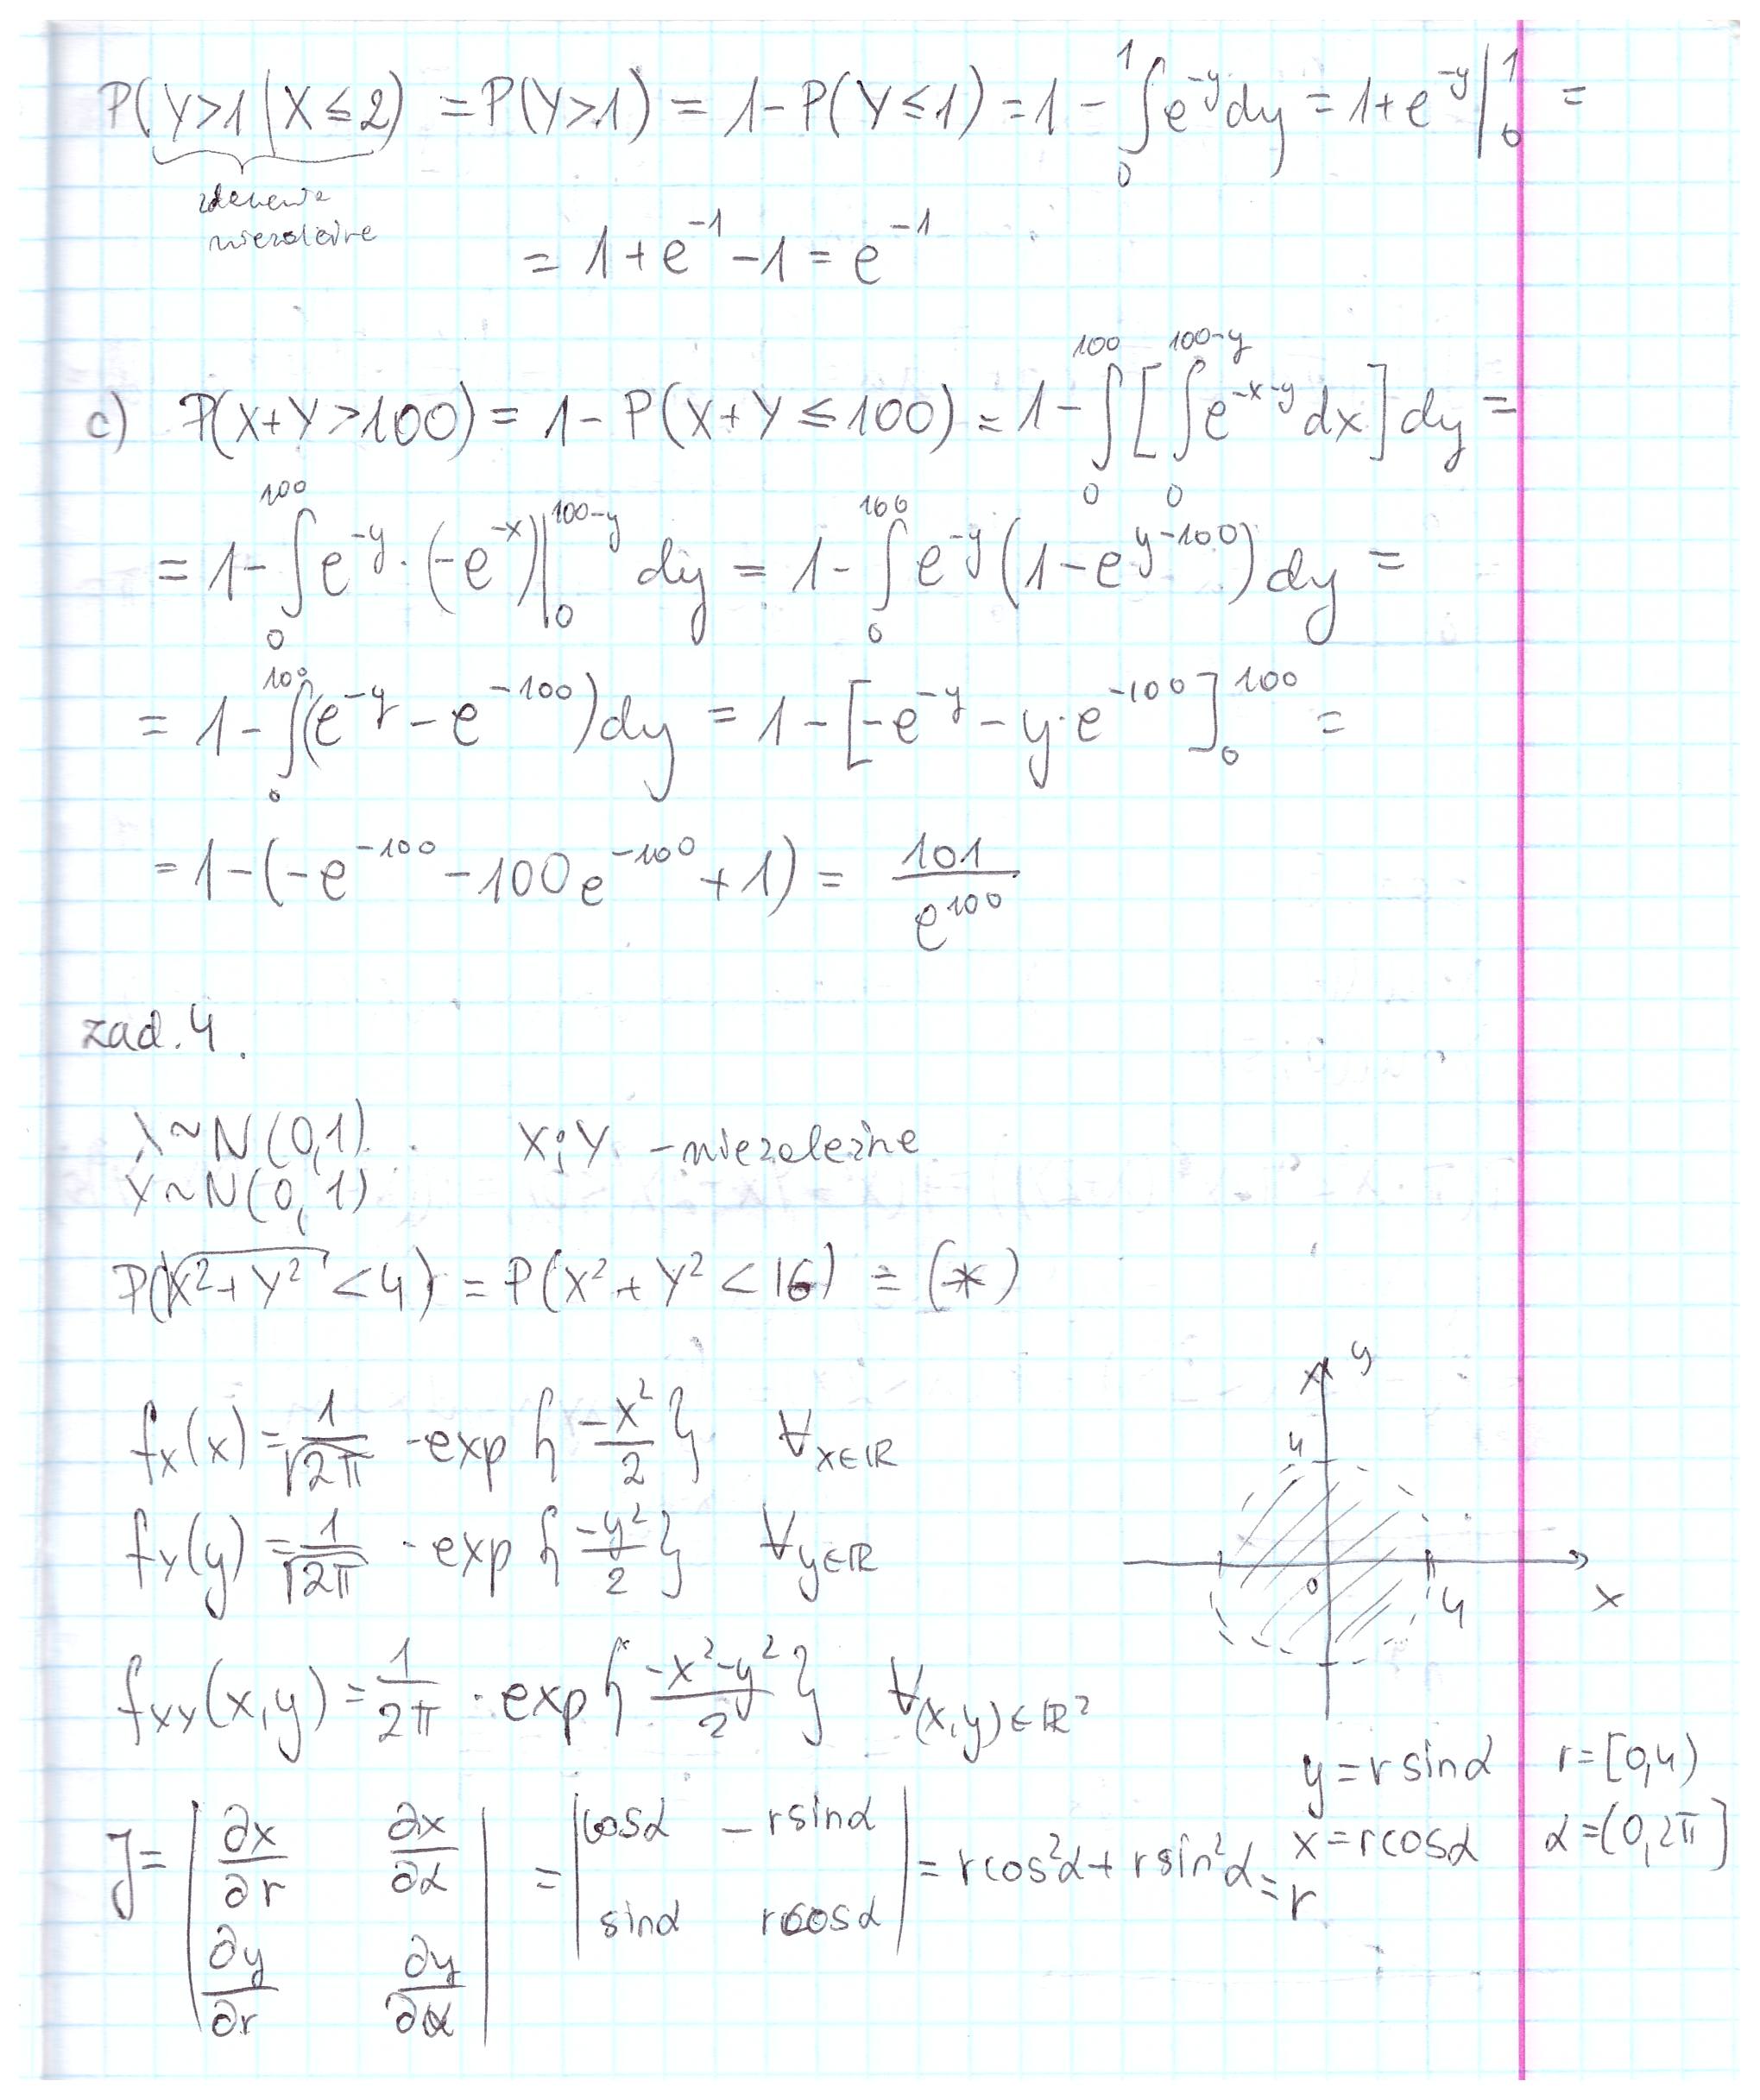 P(Y>1|X≤2) = P(Y>1) = 1-P(Y≤1) = 1 - ∫₀¹ e^{-y} dy = 1+e^{-y}|₀¹ =
niezależne
= 1+e^{-1}-1 = e^{-1}
c) P(X+Y>100) = 1-P(X+Y≤100) = 1-∫₀^{100} [∫₀^{100-y} e^{-x-y} dx] dy =
= 1-∫₀^{100} e^{-y}·(-e^{-x})|₀^{100-y} dy = 1-∫₀^{100} e^{-y}(1-e^{y-100}) dy =
= 1-∫₀^{100} (e^{-y}-e^{-100}) dy = 1-[-e^{-y}-y·e^{-100}]₀^{100} =
= 1-(-e^{-100}-100e^{-100}+1) = 101/e^{100}
zad. 4.
X~N(0,1) X i Y - niezależne
Y~N(0,1)
P(√(X²+Y²) <4) = P(X²+Y²<16) = (*)
y
f_X(x) = 1/√(2π) · exp{-x²/2} ∀_{x∈ℝ}
4
f_Y(y) = 1/√(2π) · exp{-y²/2} ∀_{y∈ℝ}
0 4 x
f_{XY}(x,y) = 1/(2π) · exp{(-x²-y²)/2} ∀_{(x,y)∈ℝ²}
y = r sinα r=[0,4)
x = r cosα α=(0,2π]
J = |∂x/∂r ∂x/∂α; ∂y/∂r ∂y/∂α| = |cosα -r sinα; sinα r cosα| = r cos²α + r sin²α = r